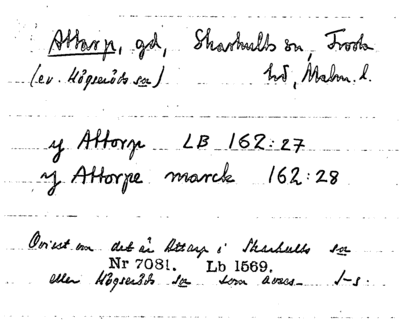 Attarp, gd, Skarhults sn, Frosta
(ev. Högseröds sn) hd, Malm. l.
y Attorp LB 162:27
y Attorpe marck 162:28
Ovisst om det är Attarp i Skarhults sn
Nr 7081. Lb 1569.
eller Högseröds sn som avses. J-s.